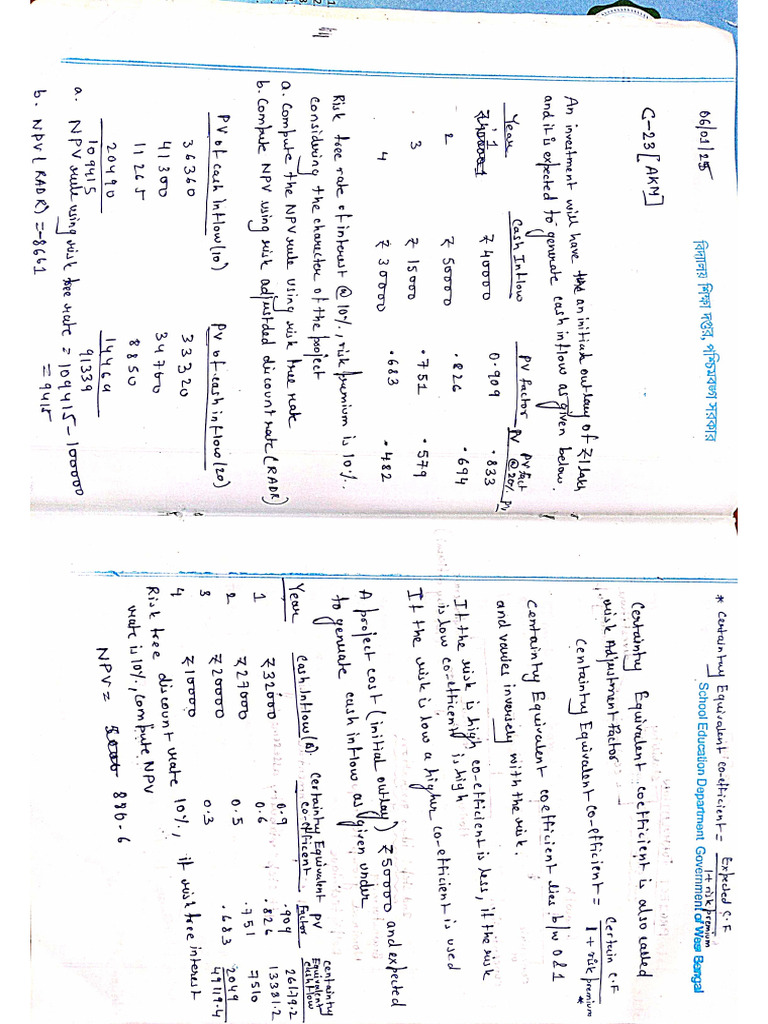 06/01/25
বিদ্যালয় শিক্ষা দপ্তর, পশ্চিমবঙ্গ সরকার
C-23 [AKM]
An investment will have an initial outlay of ₹1 lakh
and it is expected to generate cash inflow as given below.
Year Cash Inflow PV factor PV PV fact @20% PV
1 ₹ 40000 0.909 .833
2 ₹ 50000 .826 .694
3 ₹ 15000 .751 .579
4 ₹ 30000 .683 .482
Risk free rate of interest @ 10%, risk premium is 10%.
considering the character of the project
a. Compute the NPV rule using risk free rate
b. Compute NPV using risk adjusted discount rate (RADR)
PV of cash inflow (10) PV of cash inflow (20)
36360 33320
41300 34700
11265 8850
20490 14464
109415 91339
a. NPV rule using risk free rate = 109415 - 100000
= 9415
b. NPV (RADR) = -8661
School Education Department Government of West Bengal
* Certaintry Equivalent co-efficient = Expected C.F
1 + risk premium
Certainty Equivalent coefficient is also called
risk Adjustment Factor
Centaintry Equivalent co-efficient = Certain C.F
1 + risk premium *
Centaintry Equivalent coefficient lies b/w 0 & 1
and varies inversely with the risk.
If the risk is high co-efficient is less, if the risk
is low co-efficient is high
If the risk is low a higher co-efficient is used
A project cost (initial outlay) ₹ 50000 and expected
to generate cash inflow as given under
Year Cash Inflow (₹) Certaintry Equivalent co-efficent PV Factor Centainty Equivalent Cashflow
1 ₹ 32000 0.9 .909 26179.2
2 ₹ 27000 0.6 .826 13381.2
3 ₹ 20000 0.5 .751 7510
4 ₹ 10000 0.3 .683 2049
49119.4
Risk free discount rate 10%, if risk free interest
rate is 10%, compute NPV
NPV = 880.6